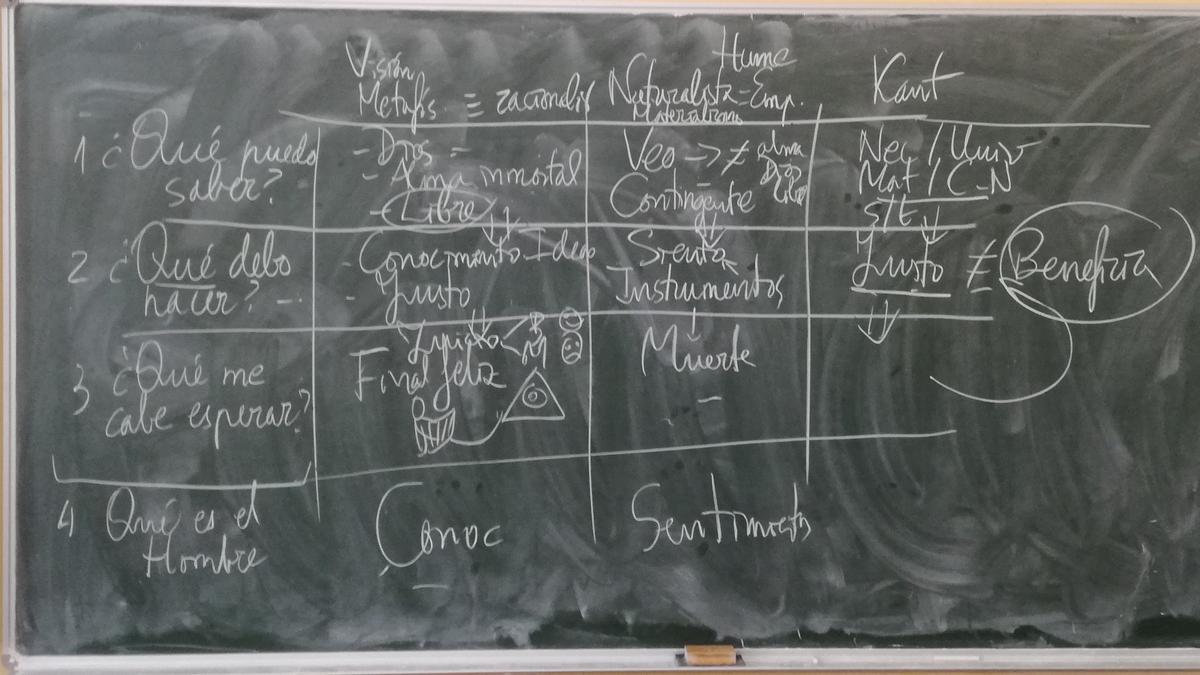 Visión
Metafís. ≡ racionalis
Hume
Naturalista = Emp.
Materialismo
Kant
1 ¿Qué puedo
saber?
- Dios =
- Alma inmortal
- Libre
Veo -> ≠ alma
Dios
Libre
Contingente
Nec / Univ
Mat / C-N
s/t
2 ¿Qué debo
hacer? -
- Conocimiento Ideas
- Justo
Siento
Instrumentos
Justo ≠ Beneficia
3 ¿Qué me
cabe esperar?
Juicio < B
M
Final feliz
Muerte
-
4 Qué es el
Hombre
Conoc
Sentimiento